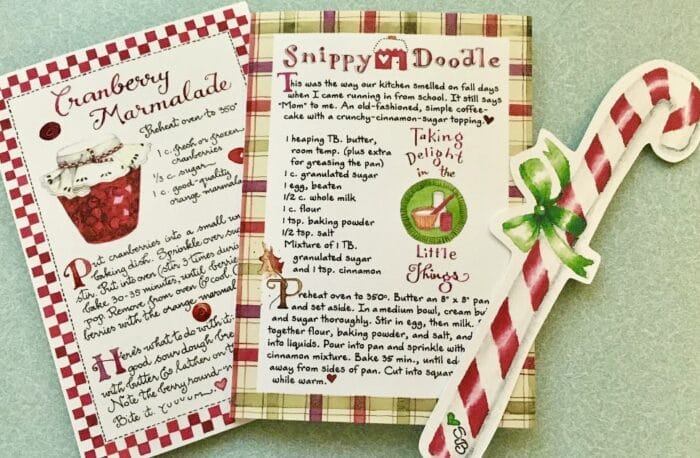 Cranberry
Marmalade
Preheat oven to 350°
1 c. fresh or frozen
cranberries
1/3 c. sugar
1 c. good-quality
orange marmala
Put cranberries into a small
baking dish. Sprinkle over
stir. Put into oven (stir 3 times
bake 30-35 minutes, until
pop. Remove from oven & cool.
berries with the orange
Here's what to do with it:
good sour dough
with butter & lather on
Note the berry round-
Bite it.
Snippy Doodle
This was the way our kitchen smelled on fall days
when I came running in from school. It still says
"Mom" to me. An old-fashioned, simple coffee-
cake with a crunchy-cinnamon-sugar topping.
1 heaping TB. butter,
room temp. (plus extra
for greasing the pan)
1 c. granulated sugar
1 egg, beaten
1/2 c. whole milk
1 c. flour
1 tsp. baking powder
1/2 tsp. salt
Mixture of 1 TB.
granulated sugar
and 1 tsp. cinnamon
Taking
Delight
in the
Little
Things
Preheat oven to 350°. Butter an 8" x 8" pan
and set aside. In a medium bowl, cream bu
and sugar thoroughly. Stir in egg, then milk.
together flour, baking powder, and salt, and
into liquids. Pour into pan and sprinkle with
cinnamon mixture. Bake 35 min., until ed
away from sides of pan. Cut into squar
while warm.
SB